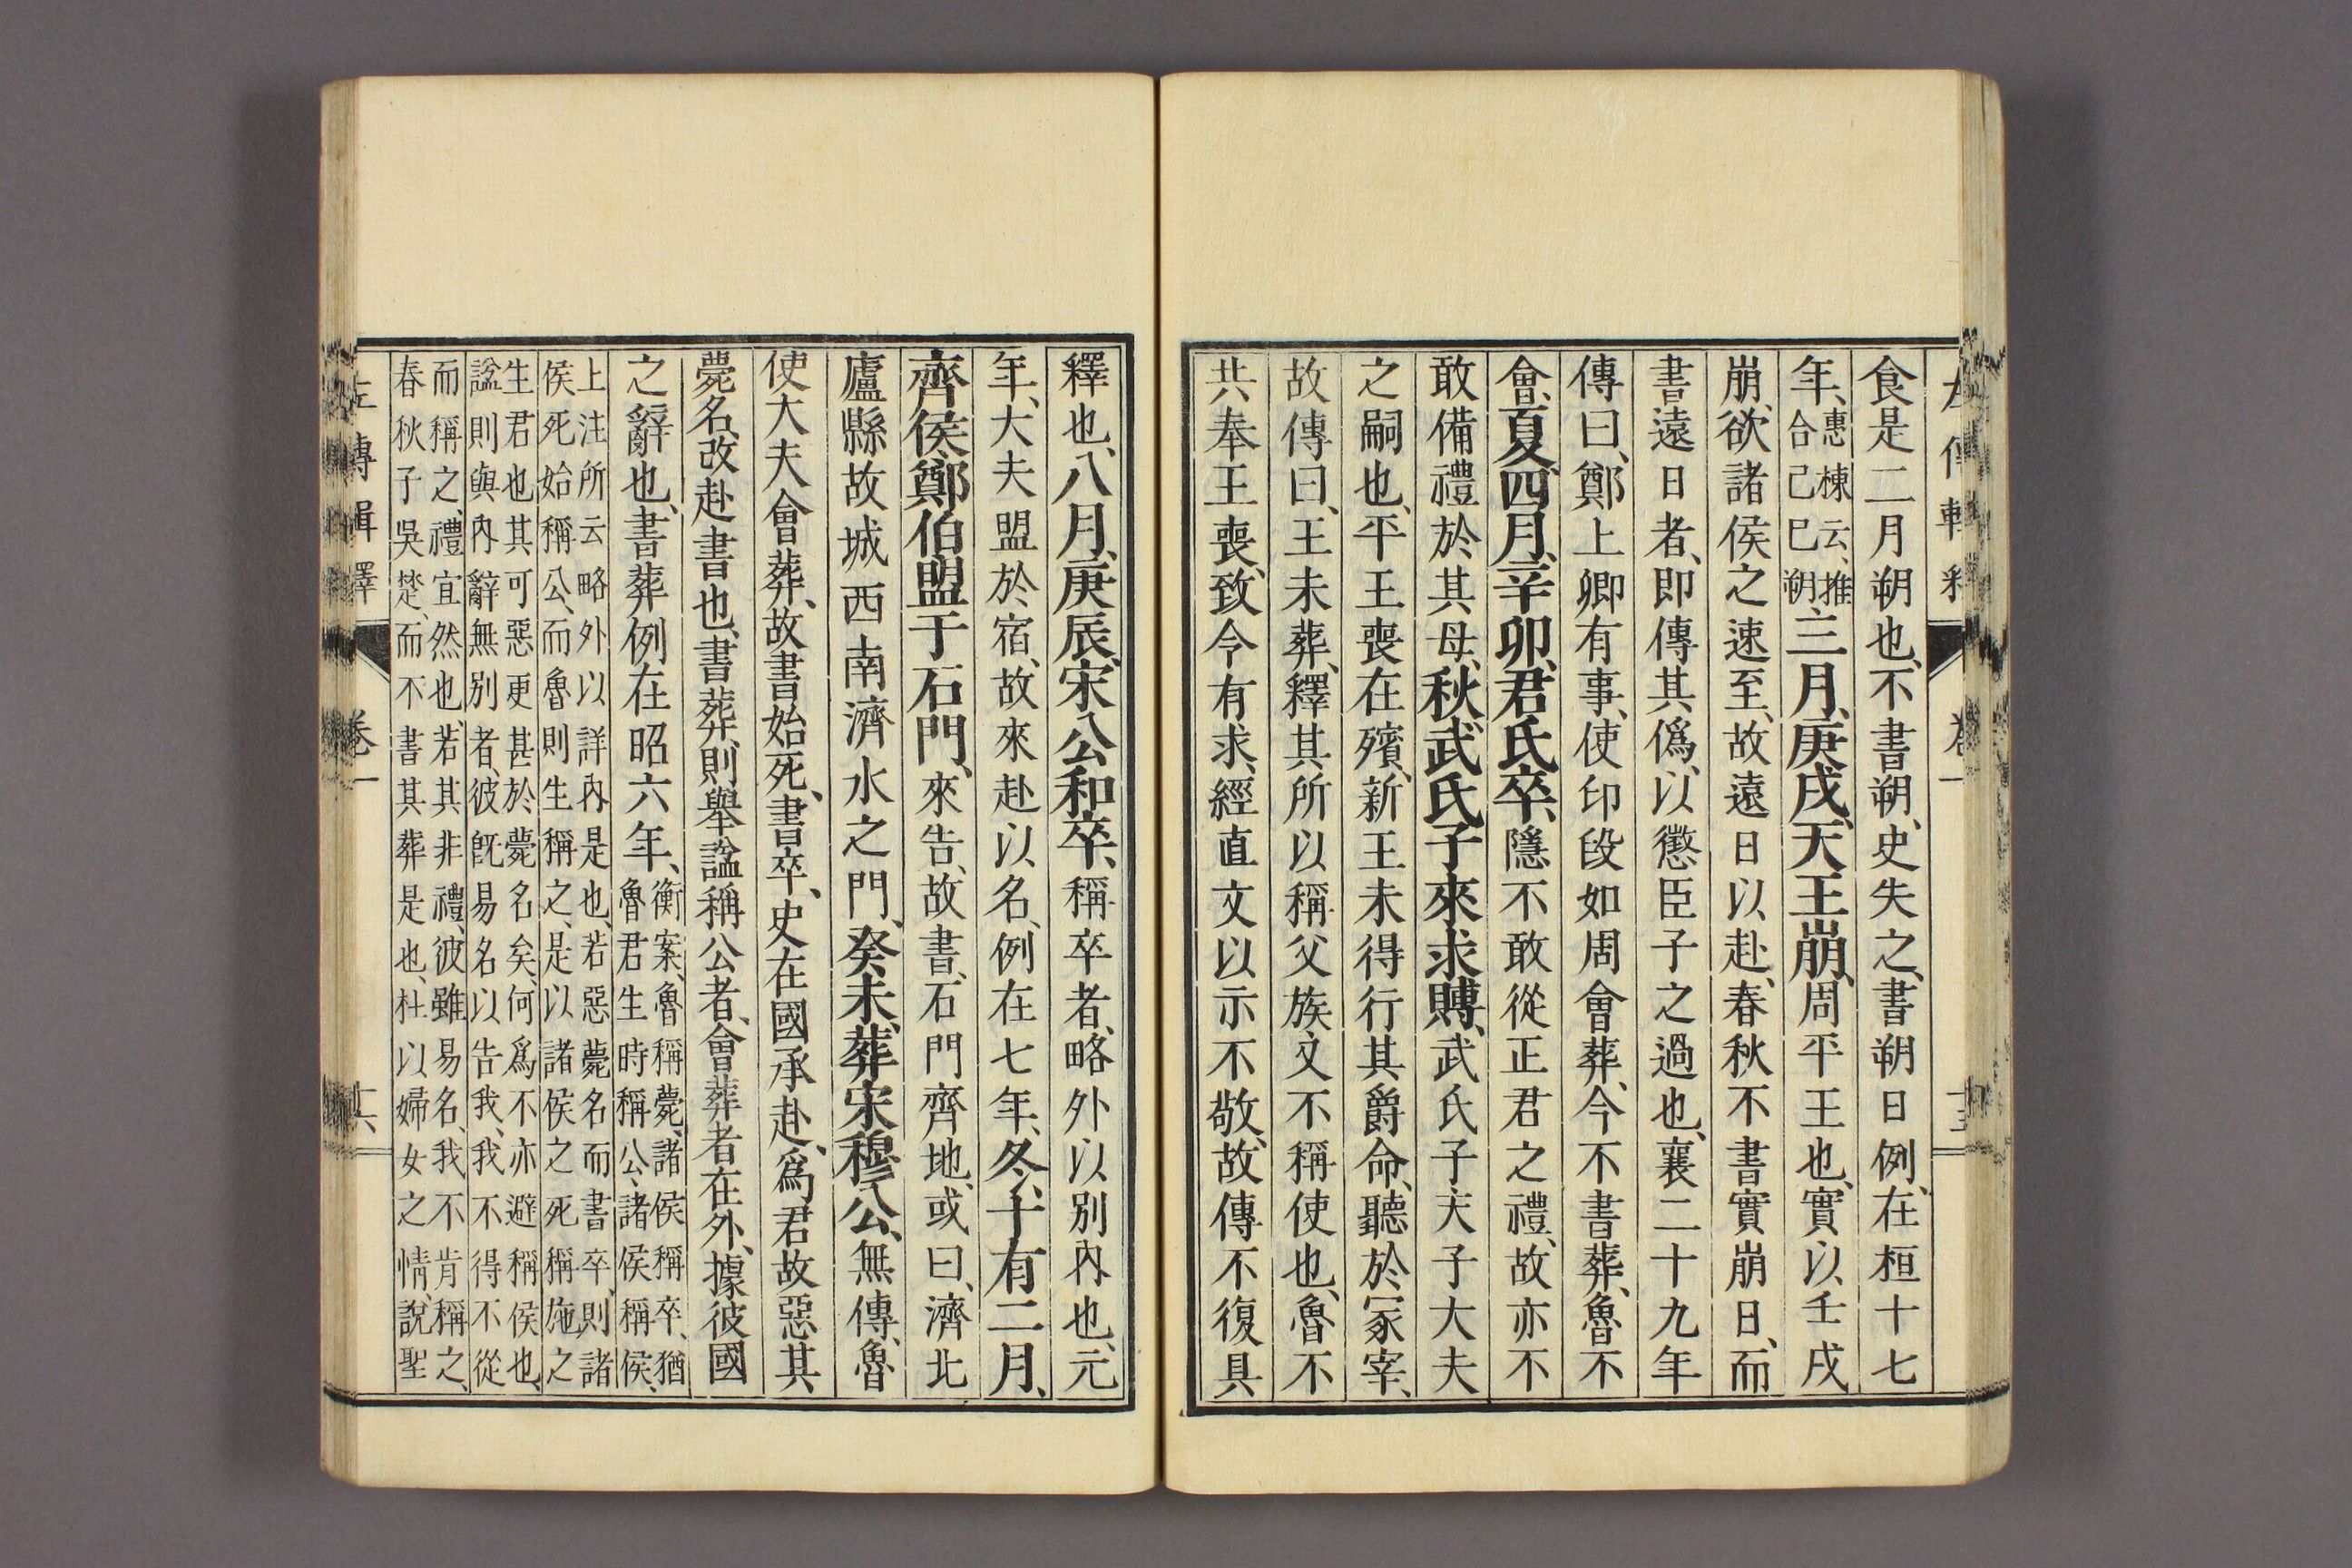 左傳輯釋 卷一
食是二月朔也、不書朔、史失之、書朔日例、在桓十七
年、惠棟云、推合己巳朔、三月、庚戌、天王崩、周平王也、實以壬戌
崩、欲諸侯之速至、故遠日以赴、春秋不書實崩日、而
書遠日者、即傳其僞、以懲臣子之過也、襄二十九年
傳曰、鄭上卿有事、使印段如周會葬、今不書葬、魯不
會、夏、四月、辛卯、君氏卒、隱不敢從正君之禮、故亦不
敢備禮於其母、秋、武氏子來求賻、武氏子天子大夫
之嗣也、平王喪在殯、新王未得行其爵命、聽於冢宰、
故傳曰、王未葬、釋其所以稱父族、又不稱使也、魯不
共奉王喪、致令有求、經直文以示不敬、故傳不復具
釋也、八月、庚辰、宋公和卒、稱卒者、略外以別內也、元
年、大夫盟於宿、故來赴以名、例在七年、冬、十有二月、
齊侯鄭伯盟于石門、來告、故書、石門齊地、或曰、濟北
盧縣故城西南濟水之門、癸未、葬宋穆公、無傳、魯
使大夫會葬、故書始死、書卒、史在國承赴、爲君故惡其
薨名、改赴書也、書葬、則舉謚稱公者、會葬者在外、據彼國
之辭也、書葬例在昭六年、衡案、魯稱薨、諸侯稱卒、猶
魯君生時稱公、諸侯稱侯、
上注所云略外以詳內是也、若惡薨名而書卒、則諸
侯死始稱公、而魯則生稱之、是以諸侯之死稱施之
生君也、其可惡更甚於薨名矣、何爲不亦避稱侯也、
謚則與內辭無別者、彼既易名以告我、我不得不從
而稱之、禮宜然也、若其非禮、彼雖易名、我不肯稱之、
春秋子吳楚、而不書其葬是也、杜以婦女之情、說聖
左傳輯釋 卷一 十六